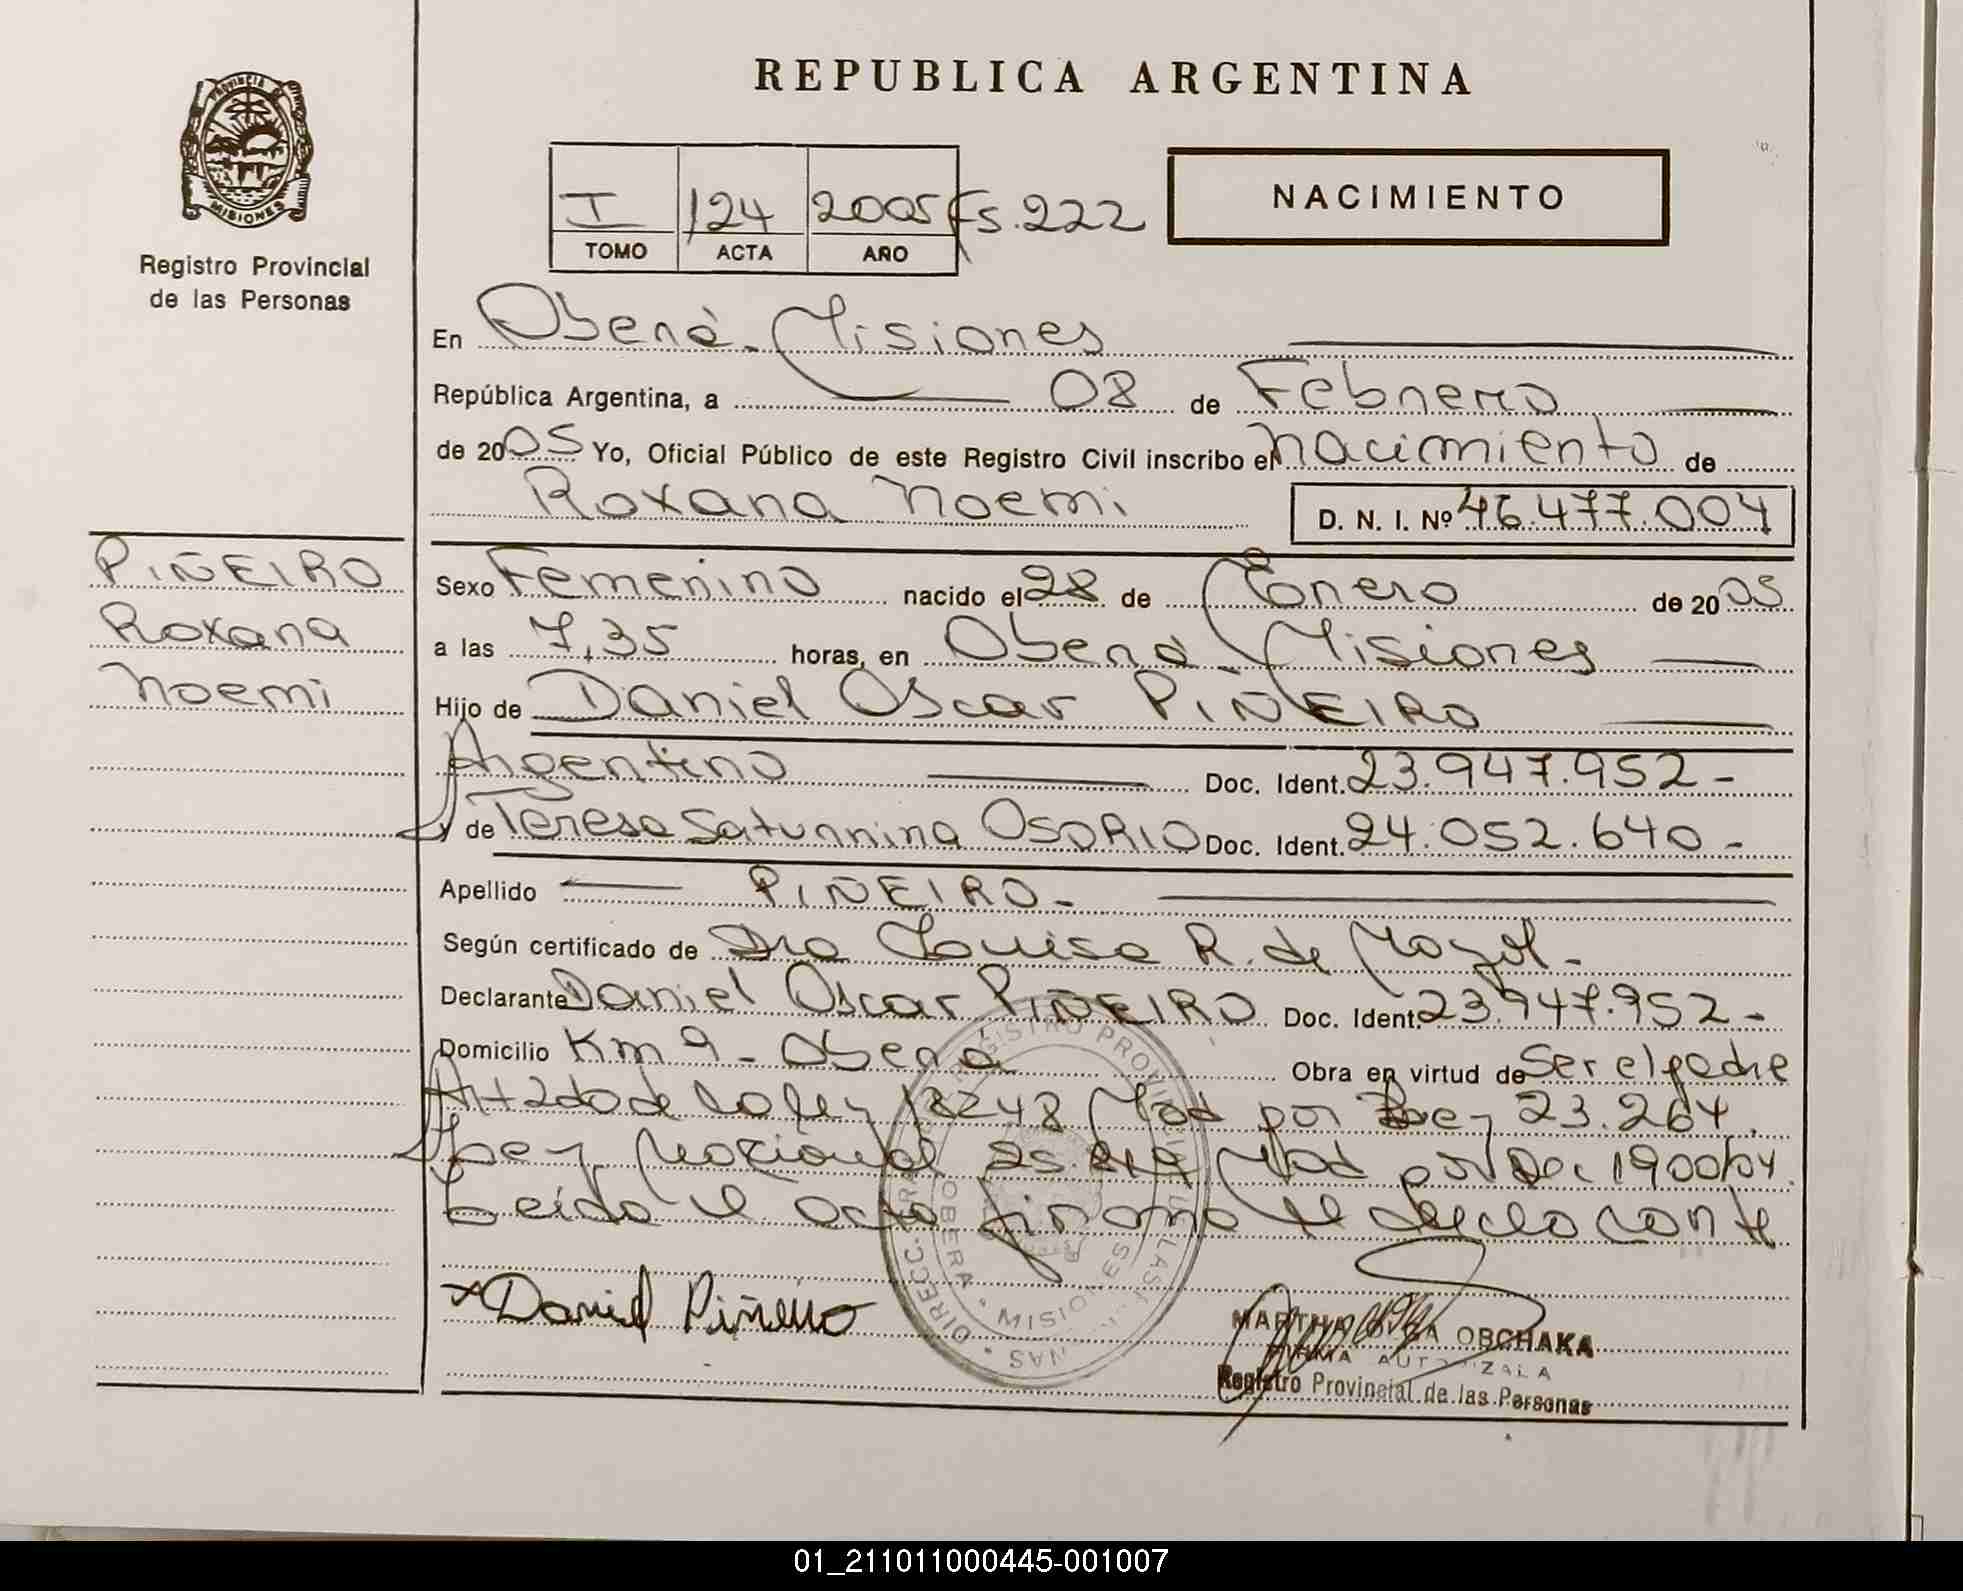 REPUBLICA ARGENTINA
PROVINCIA DE
MISIONES
Registro Provincial
de las Personas
I 124 2005 Fs. 222
TOMO ACTA AÑO
NACIMIENTO
En Oberá - Misiones
República Argentina, a 08 de Febrero
de 2005 Yo, Oficial Público de este Registro Civil inscribo el Nacimiento de
Roxana Noemi D. N. I. Nº 46.477.004
PIÑEIRO
Roxana
Noemi
Sexo Femenino nacido el 28 de Enero de 2005
a las 7,35 horas, en Oberá - Misiones
Hijo de Daniel Oscar PIÑEIRO
Argentino Doc. Ident. 23.947.952-
y de Teresa Saturnina OSORIO Doc. Ident. 24.052.640-
Apellido PIÑEIRO-
Según certificado de Dra Louisa R. de
Declarante Daniel Oscar PIÑEIRO Doc. Ident. 23.947.952-
Domicilio Km 9 - Oberá Obra en virtud de Ser el padre
Art 2do de la ley 18248 Mod por Ley 23.264.
Ley Nacional 25.819 Mod por Dec 1900/04.
Leído el acta firma el declarante
Daniel Piñeiro
MARTHA OLGA OBCHAKA
FIRMA AUTORIZADA
Registro Provincial de las Personas
OBERA • MISIONES
01_211011000445-001007